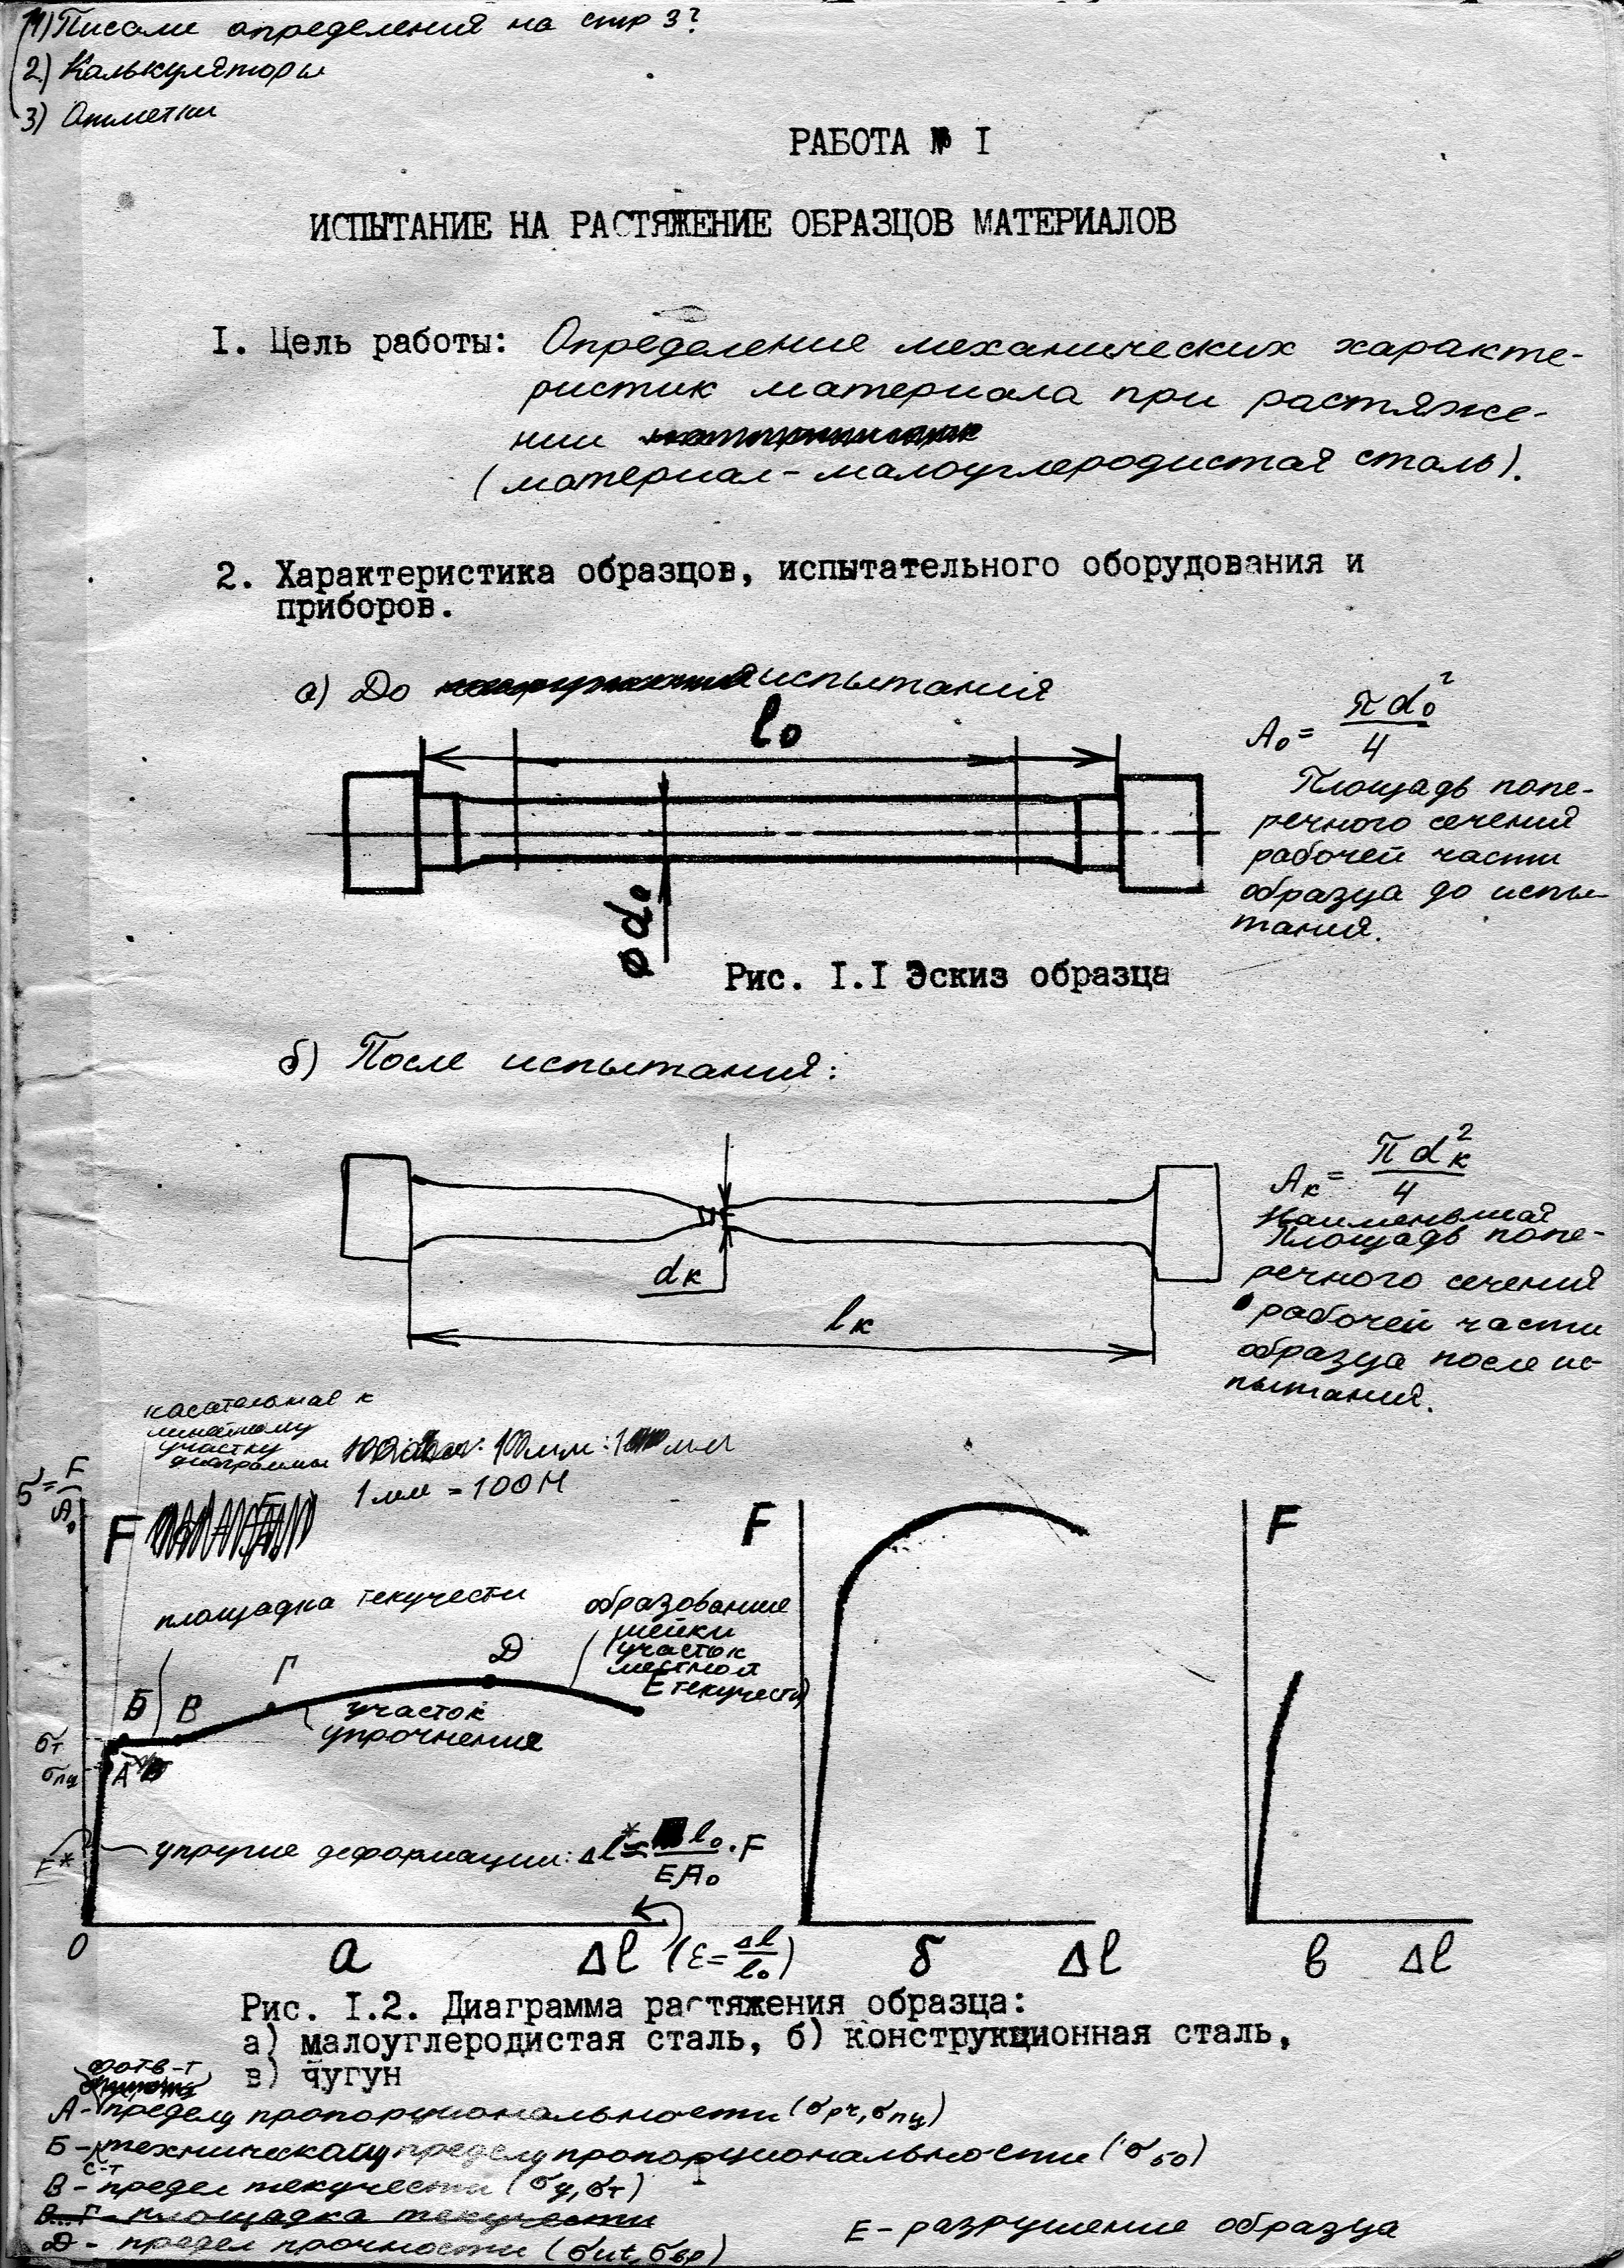 1) Писали определения на стр 3?
2) Калькуляторы
3) Отметки
РАБОТА № I
ИСПЫТАНИЕ НА РАСТЯЖЕНИЕ ОБРАЗЦОВ МАТЕРИАЛОВ
I. Цель работы: Определение механических характе-
ристик материала при растяже-
нии
(материал - малоуглеродистая сталь).
2. Характеристика образцов, испытательного оборудования и
приборов.
а) До испытания
l₀
A₀ = πd₀²/4
Площадь попе-
речного сечения
рабочей части
образца до испы-
тания.
ø d₀
Рис. I.I Эскиз образца
б) После испытания:
Aк = πdк²/4
Наименьшая
Площадь попе-
речного сечения
рабочей части
образца после ис-
пытания.
dк
lк
касательная к
линейному
участку
диаграммы
1 мм = 100 Н
σ = F/A₀
F
площадка текучести
образование
шейки
(участок
местной
текучести)
Б
В
Г
Д
Е
участок
упрочнения
σт
σпц
А
F*
упругие деформации: Δl* = l₀/EA₀ · F
0
а
Δl
(ε = Δl/l₀)
F
б
Δl
F
в
Δl
Рис. I.2. Диаграмма растяжения образца:
а) малоуглеродистая сталь, б) конструкционная сталь,
в) чугун
соотв-т
А - пределу пропорциональности (σpr, σпц)
Б - техническому пределу пропорциональности (σ₅₀)
В - предел текучести (σy, σт)
В...Г - площадка текучести
Д - предел прочности (σut, σвр)
Е - разрушение образца